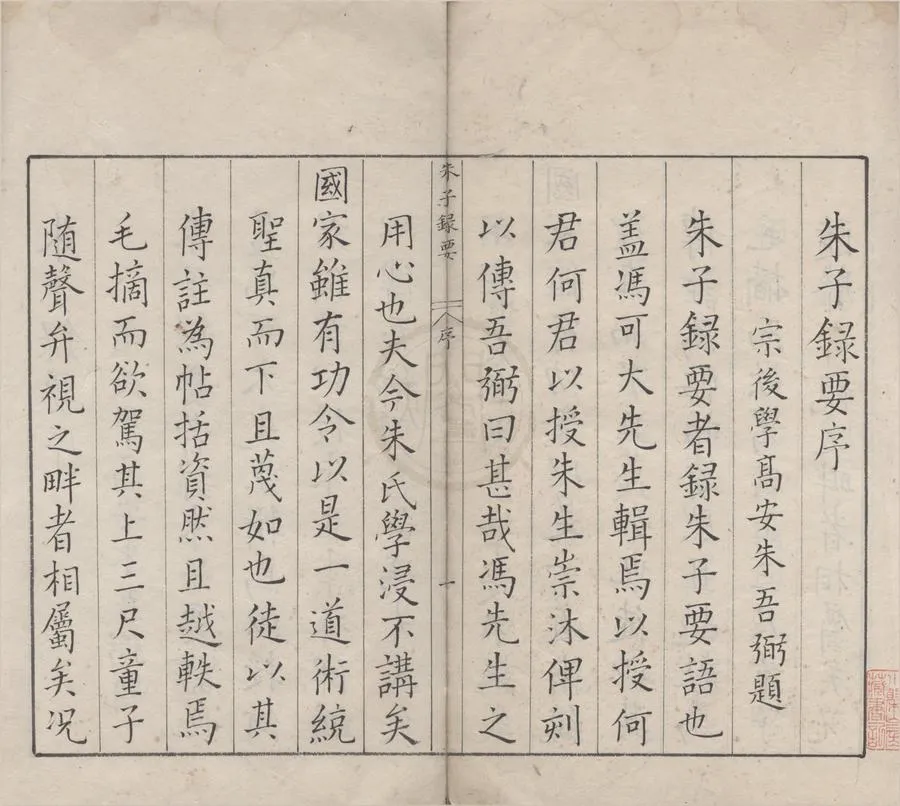 朱子録要序
宗後學髙安朱吾弼題
朱子録要者録朱子要語也
盖馮可大先生輯焉以授何
君何君以授朱生崇沐俾刻
以傳吾弼曰甚哉馮先生之
朱子録要 序 一
用心也夫今朱氏學浸不講矣
國家雖有功令以是一道術綂
聖真而下且蔑如也徒以其
傳註為帖括資然且越軼焉
毛摘而欲駕其上三尺童子
随聲弁視之畔者相屬矣况